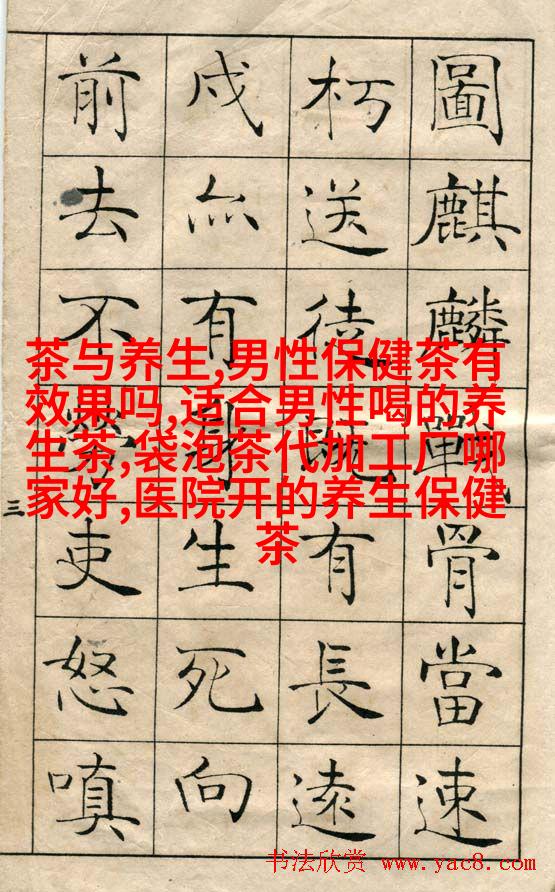 圖麒麟戰骨當速
朽送徒既有長遠
戍亦有身生死向
前去不勞吏怒嗔
三
茶与养生,男性保健茶有
效果吗,适合男性喝的养
生茶,袋泡茶代加工厂哪
家好,医院开的养生保健
茶
书法欣赏 www.yac8.com